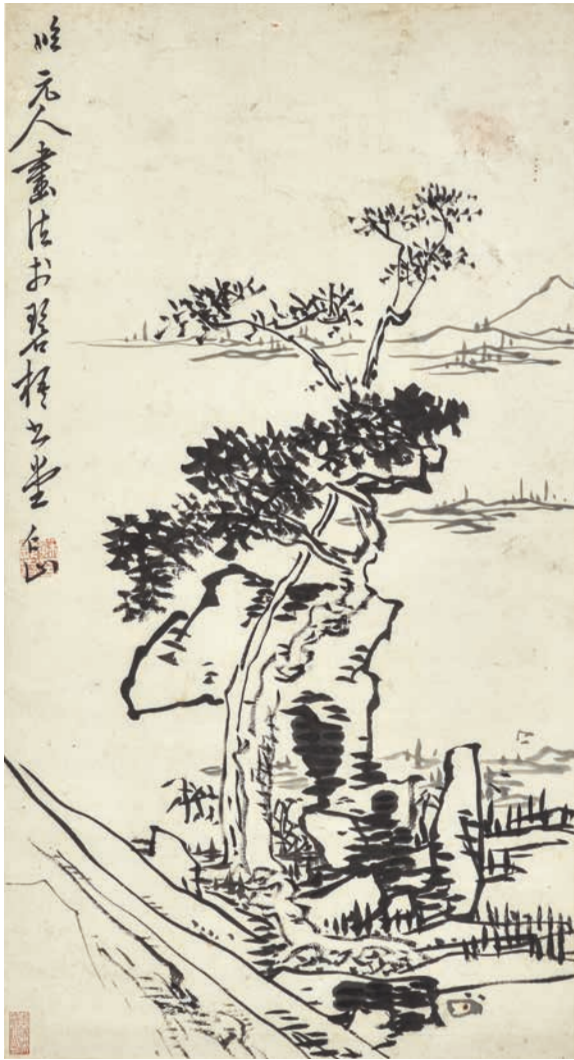 臨元人畫法於碧梧書堂 仁山